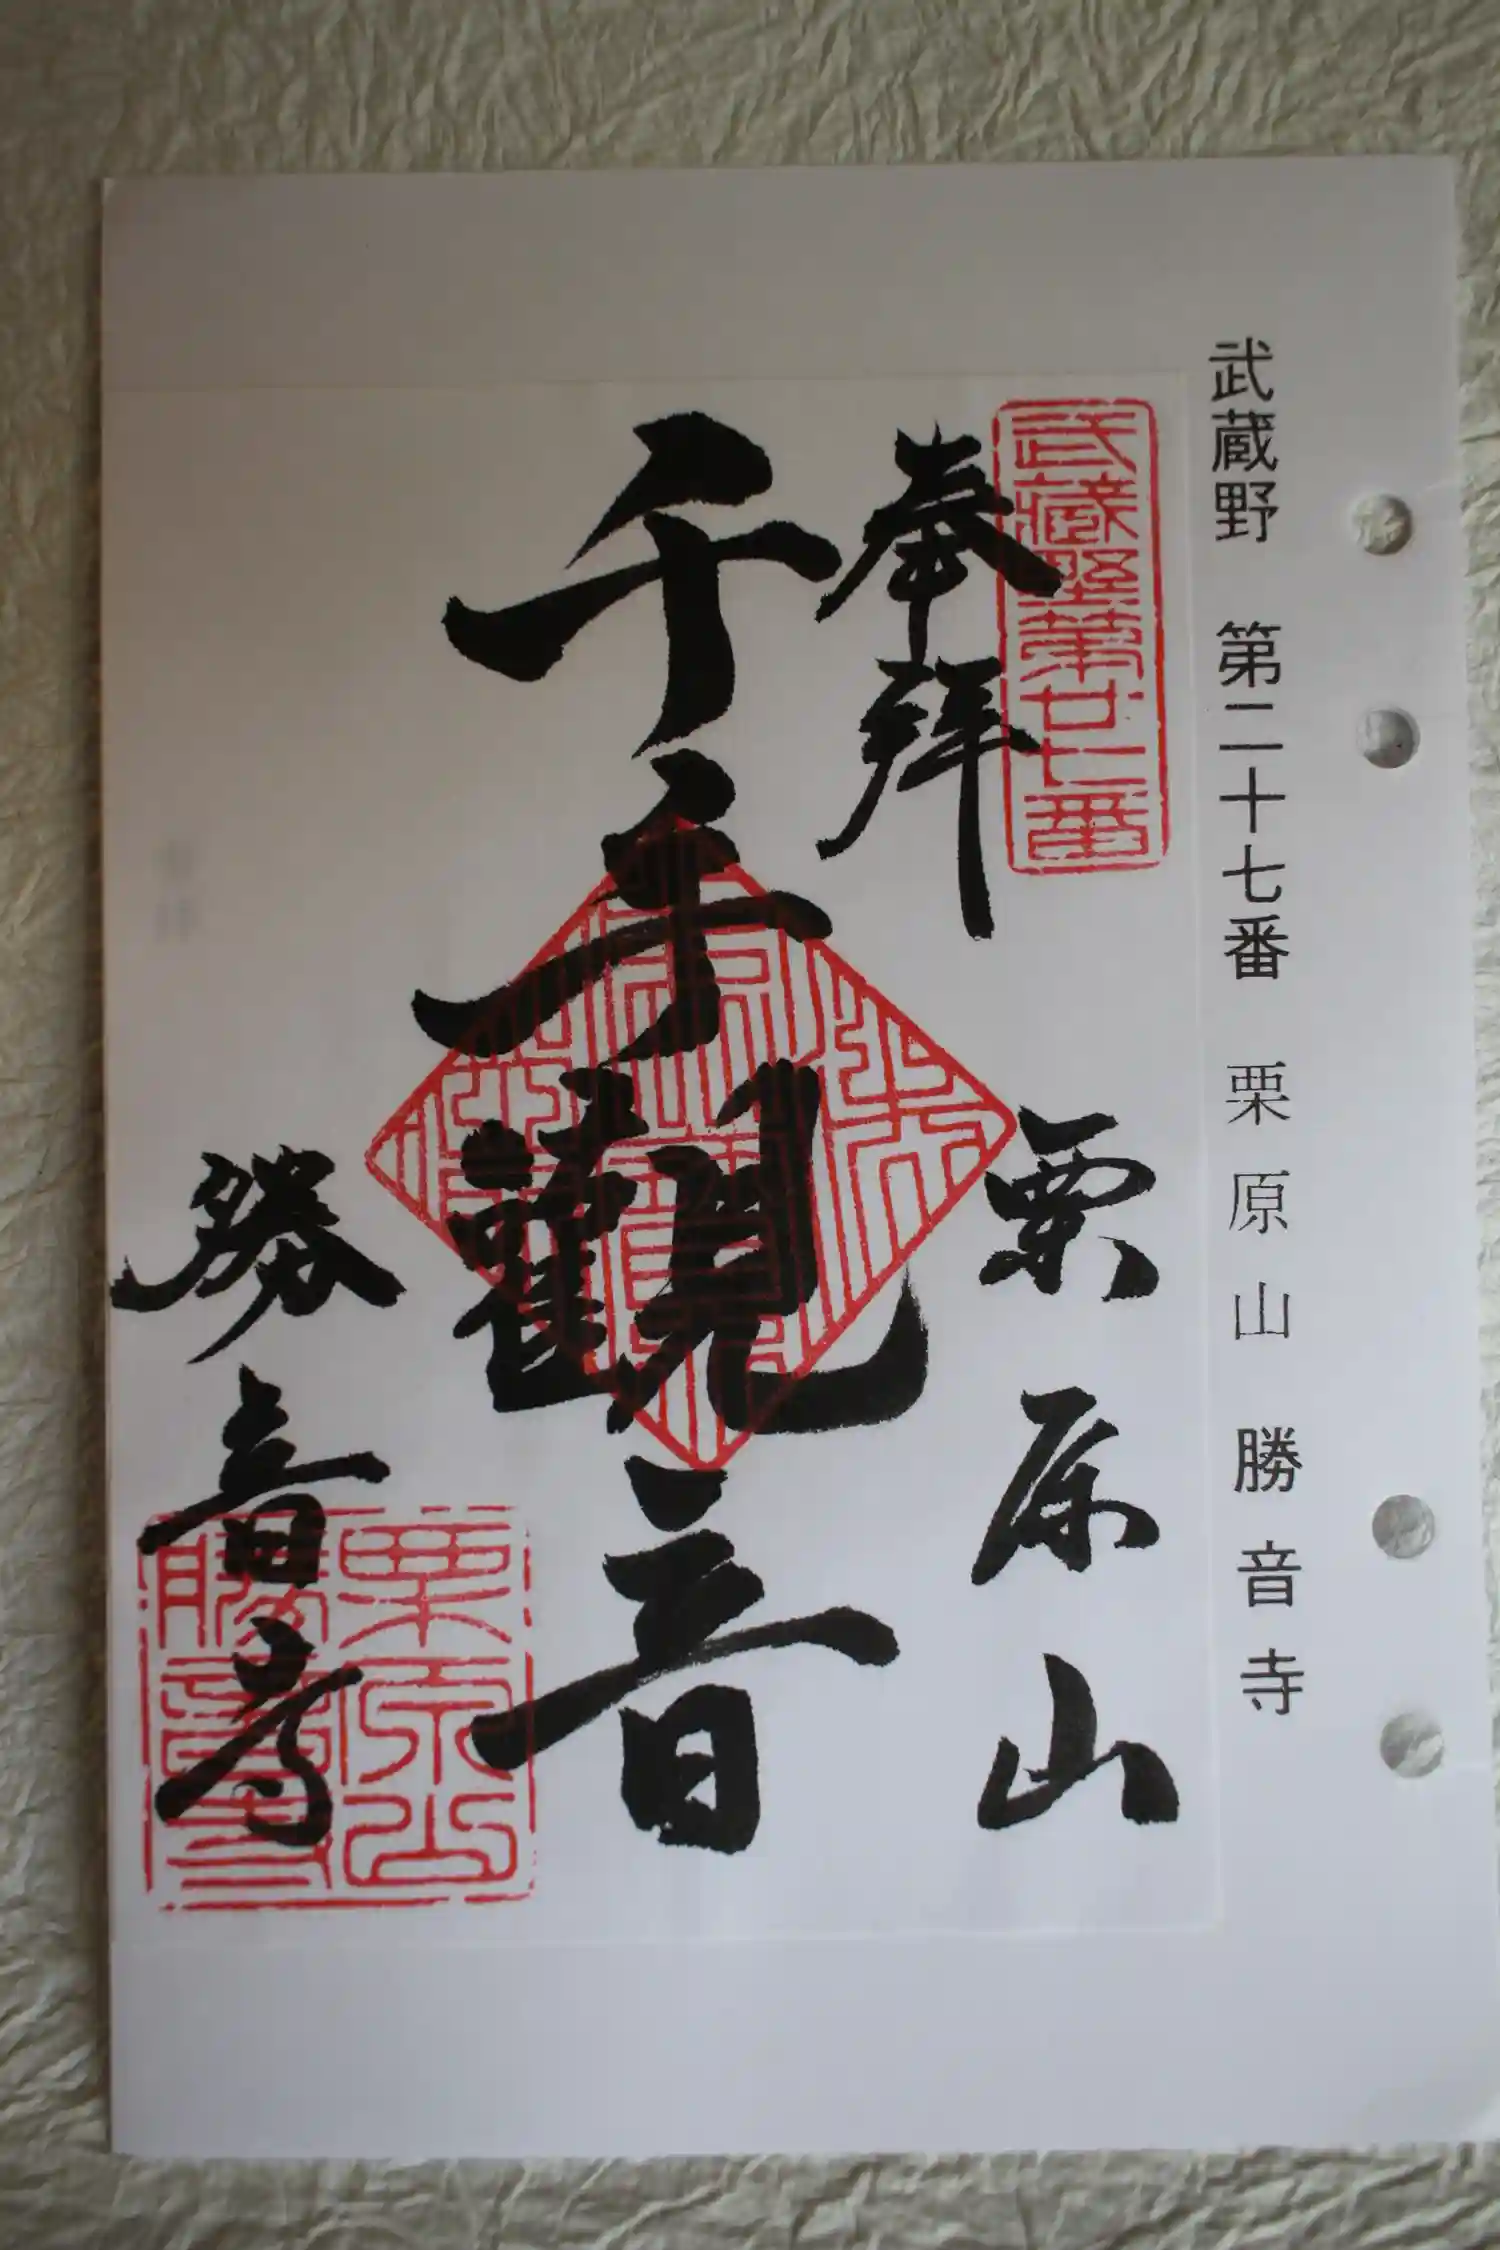 武蔵野 第二十七番 栗原山 勝音寺
武蔵野第廿七番
奉拝
栗原山
千手観音
勝音寺
栗原山
勝音寺